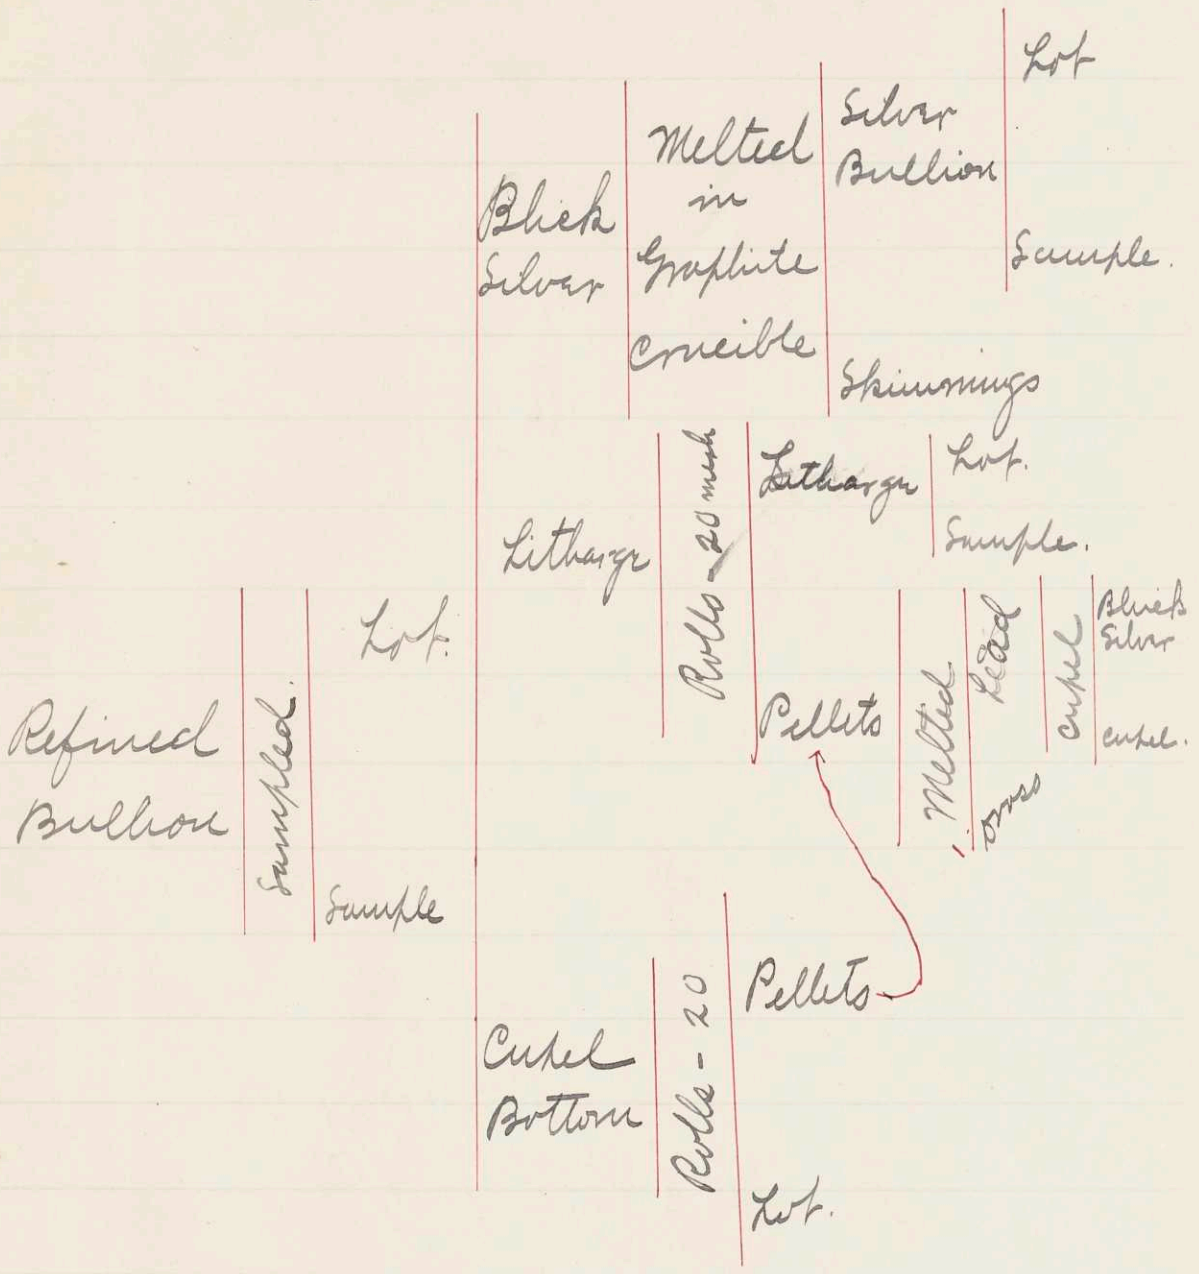 Refined
Bullion
Sampled.
Lot.
Sample
Blick
Silver
Melted
in
Graphite
Crucible
Silver
Bullion
Lot
Sample.
Skimmings
Litharge
Rolls - 20 mesh
Litharge
Lot.
Sample.
Pellets
Melted
Lead
Cupel
Blick
Silver
Cupel.
Dross
Cupel
Bottom
Rolls - 20
Pellets
Lot.